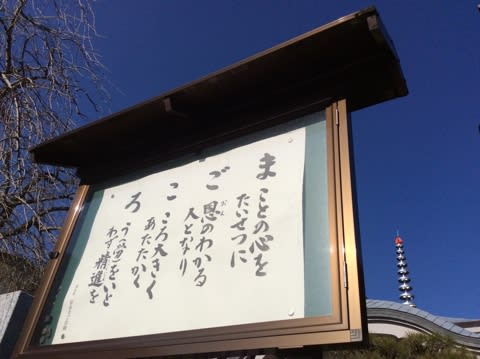 まことの心を
たいせつに
ご恩のわかる
おん
人となり
こころ大きく
あたたかく
ろう(労)をいと
わず精進を